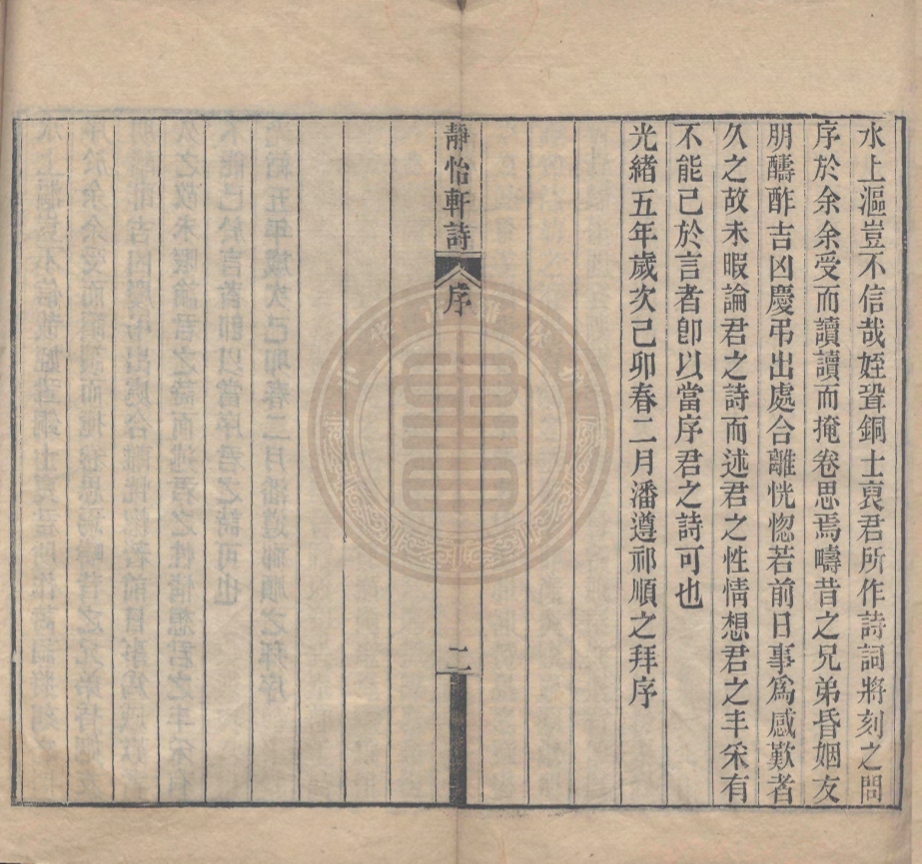 水上漚豈不信哉姪䇔銅士裒君所作詩詞將刻之問
序於余余受而讀讀而掩卷思焉疇昔之兄弟昏姻友
朋醻酢吉凶慶弔出處合離恍惚若前日事爲感歎者
久之故未暇論君之詩而述君之性情想君之丰采有
不能已於言者卽以當序君之詩可也
光緒五年歲次己卯春二月潘遵祁順之拜序
靜怡軒詩 序 二